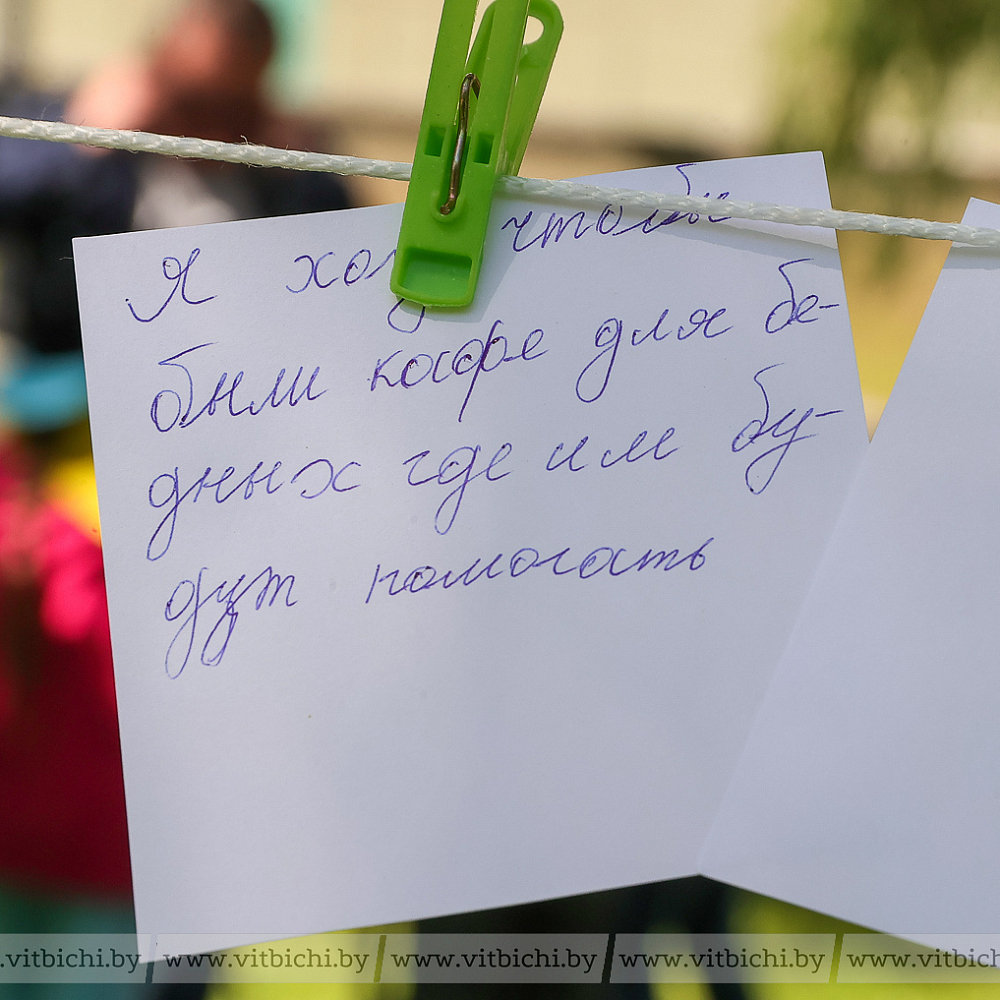 Я хо чтобы
были кафе для бе-
дных где им бу-
дут помогать
www.vitbichi.by www.vitbichi.by www.vitbichi.by www.vitbichi.by www.vitbichi.by